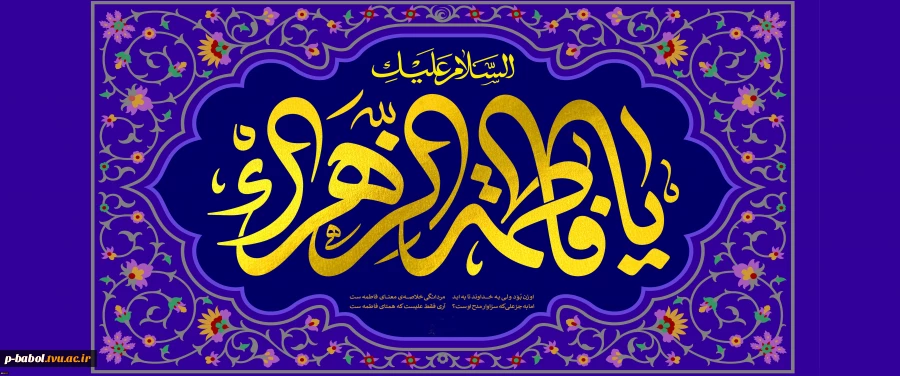 السَّلامُ عَلَيْكِ
يا فاطمة الزّهراء
او زن بُوَد ولی به خداوند تا به ابد مردانگی خلاصه‌ی معنای فاطمه ست
اما به جز علی که سزاوار مدح اوست؟ آری فقط علیست که همتای فاطمه ست
p-babol.tvu.ac.ir